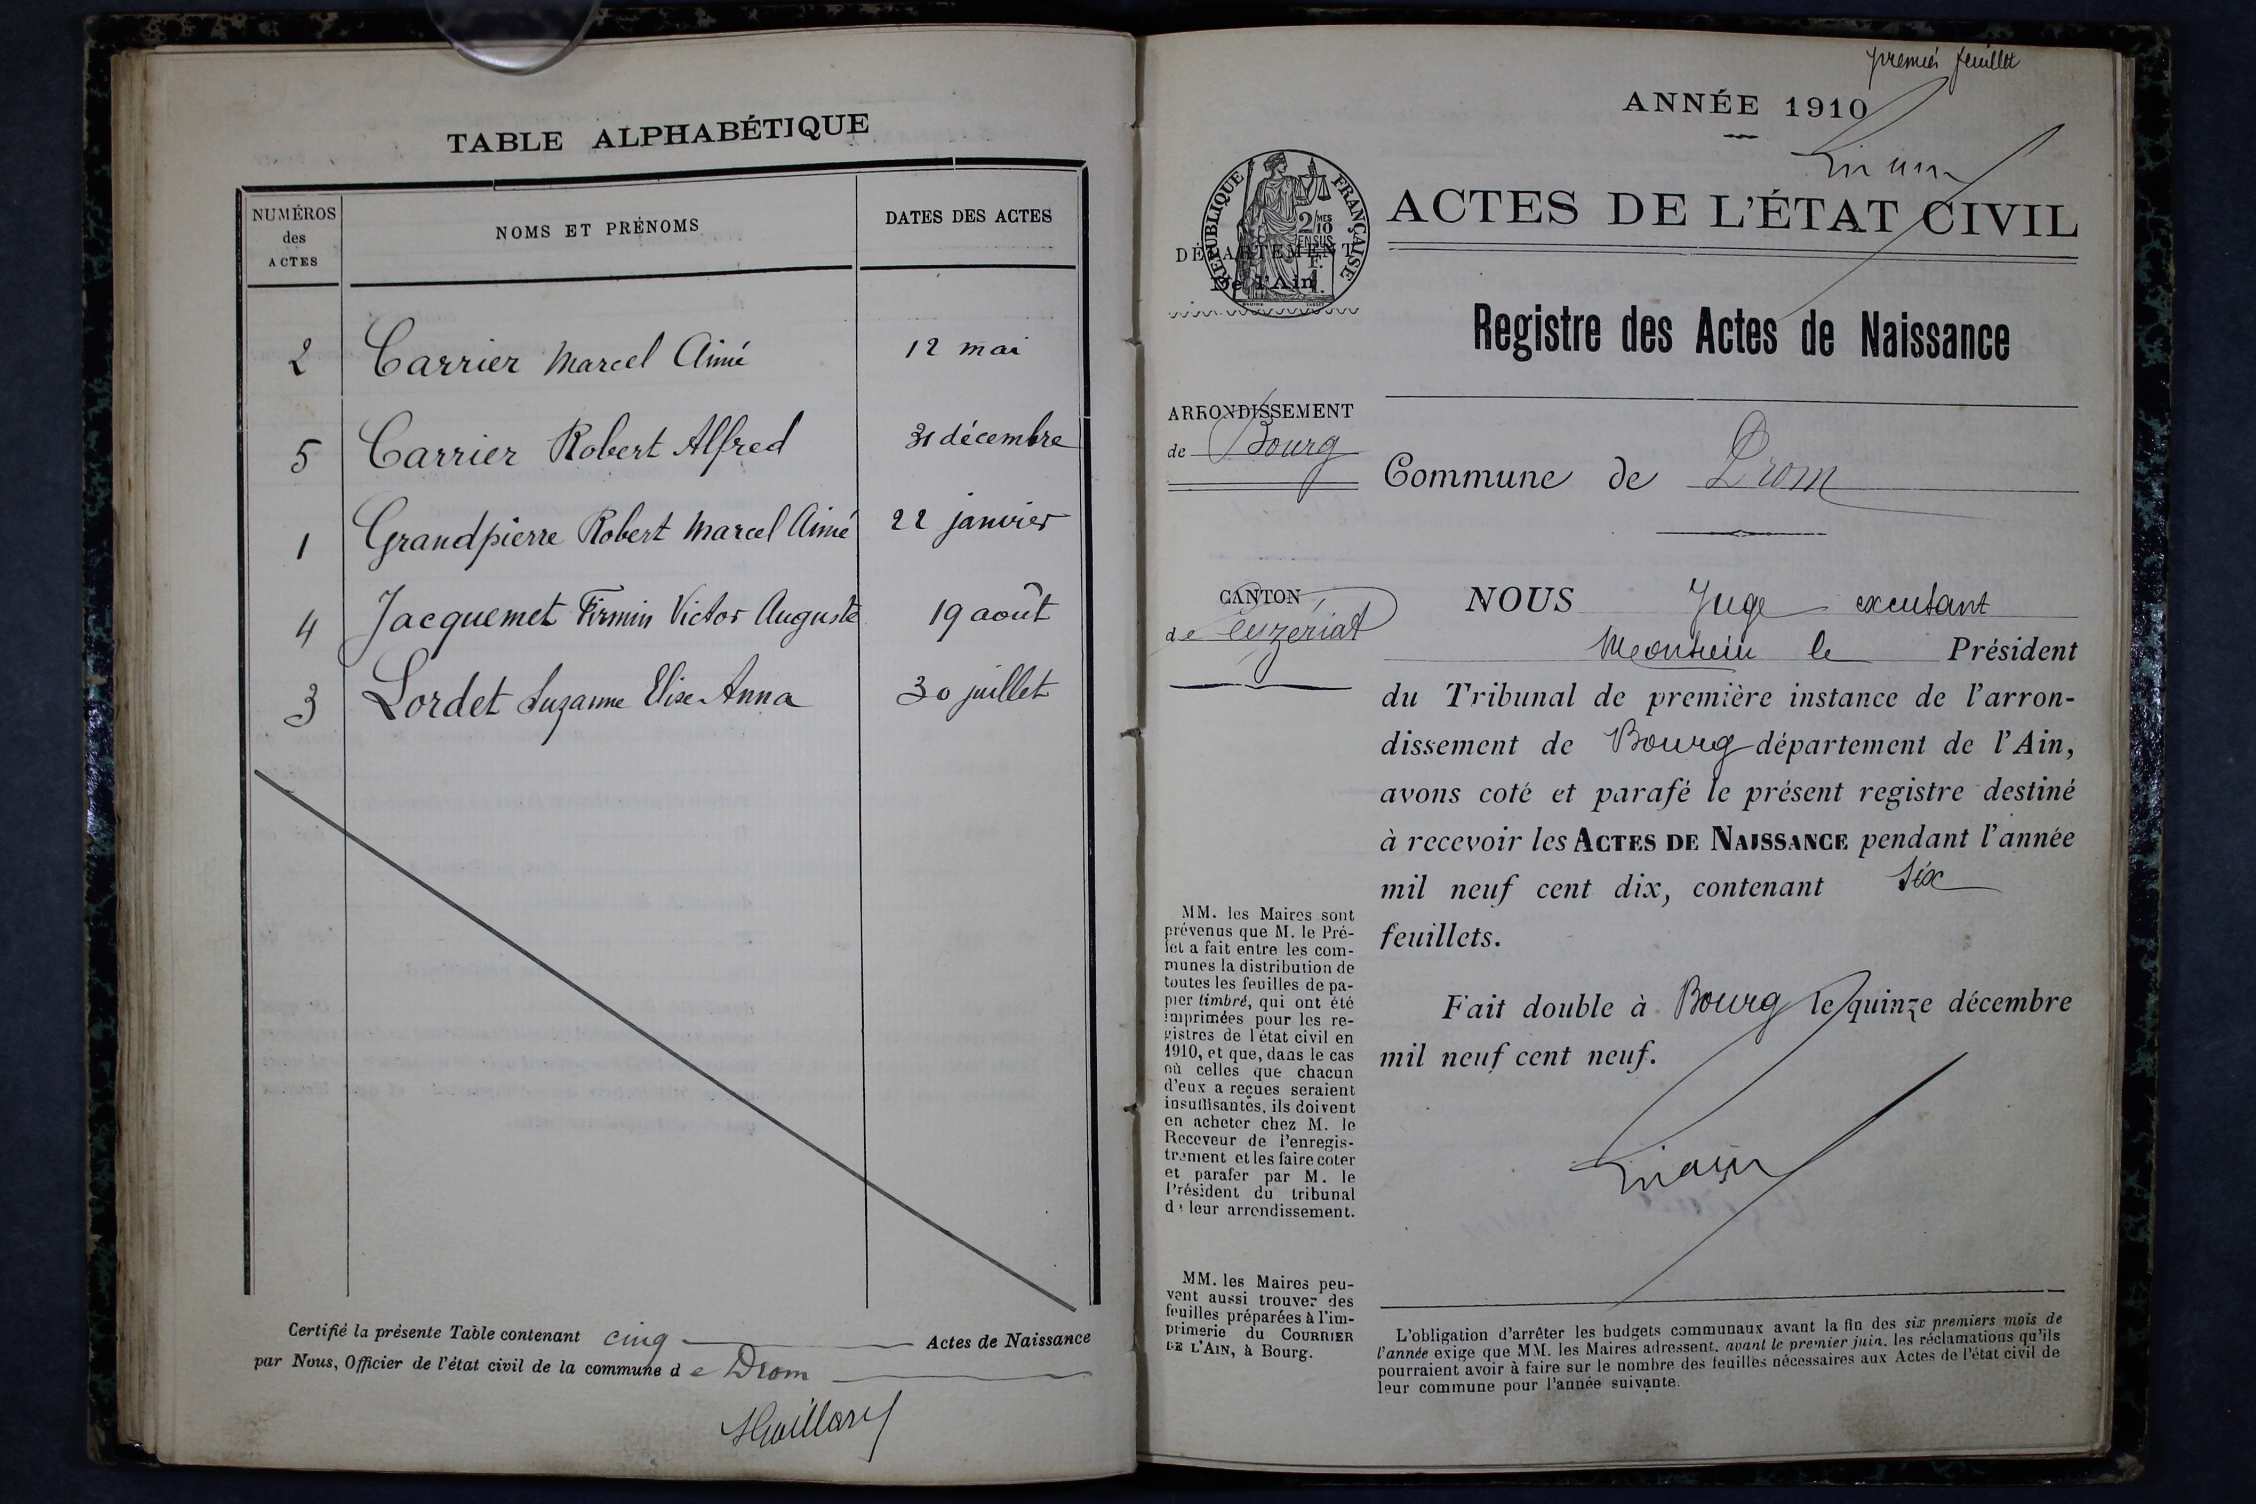 TABLE ALPHABÉTIQUE
NUMÉROS des ACTES
NOMS ET PRÉNOMS
DATES DES ACTES
2 Carrier Marcel Aimé 12 mai
5 Carrier Robert Alfred 31 décembre
1 Grandpierre Robert Marcel Aimé 22 janvier
4 Jacquemet Firmin Victor Auguste 19 août
3 Lordet Suzanne Elise Anna 30 juillet
Certifié la présente Table contenant cinq Actes de Naissance
par Nous, Officier de l'état civil de la commune de Drom
premier feuillet
ANNÉE 1910
RÉPUBLIQUE FRANÇAISE
2/10 MES
EN SUS
1 F.
ACTES DE L'ÉTAT CIVIL
DÉPARTEMENT
De l'Ain
Registre des Actes de Naissance
ARRONDISSEMENT
de Bourg
Commune de Drom
CANTON
de Ceyzériat
NOUS Juge excusant
Monsieur le Président
du Tribunal de première instance de l'arron-
dissement de Bourg département de l'Ain,
avons coté et parafé le présent registre destiné
à recevoir les ACTES DE NAISSANCE pendant l'année
mil neuf cent dix, contenant six
feuillets.
Fait double à Bourg le quinze décembre
mil neuf cent neuf.
MM. les Maires sont
prévenus que M. le Pré-
fet a fait entre les com-
munes la distribution de
toutes les feuilles de pa-
pier timbré, qui ont été
imprimées pour les re-
gistres de l'état civil en
1910, et que, dans le cas
où celles que chacun
d'eux a reçues seraient
insuffisantes, ils doivent
en acheter chez M. le
Receveur de l'enregis-
trement et les faire coter
et parafer par M. le
Président du tribunal
de leur arrondissement.
MM. les Maires peu-
vent aussi trouver des
feuilles préparées à l'im-
primerie du COURRIER
DE L'AIN, à Bourg.
L'obligation d'arrêter les budgets communaux avant la fin des six premiers mois de
l'année exige que MM. les Maires adressent, avant le premier juin, les réclamations qu'ils
pourraient avoir à faire sur le nombre des feuilles nécessaires aux Actes de l'état civil de
leur commune pour l'année suivante.